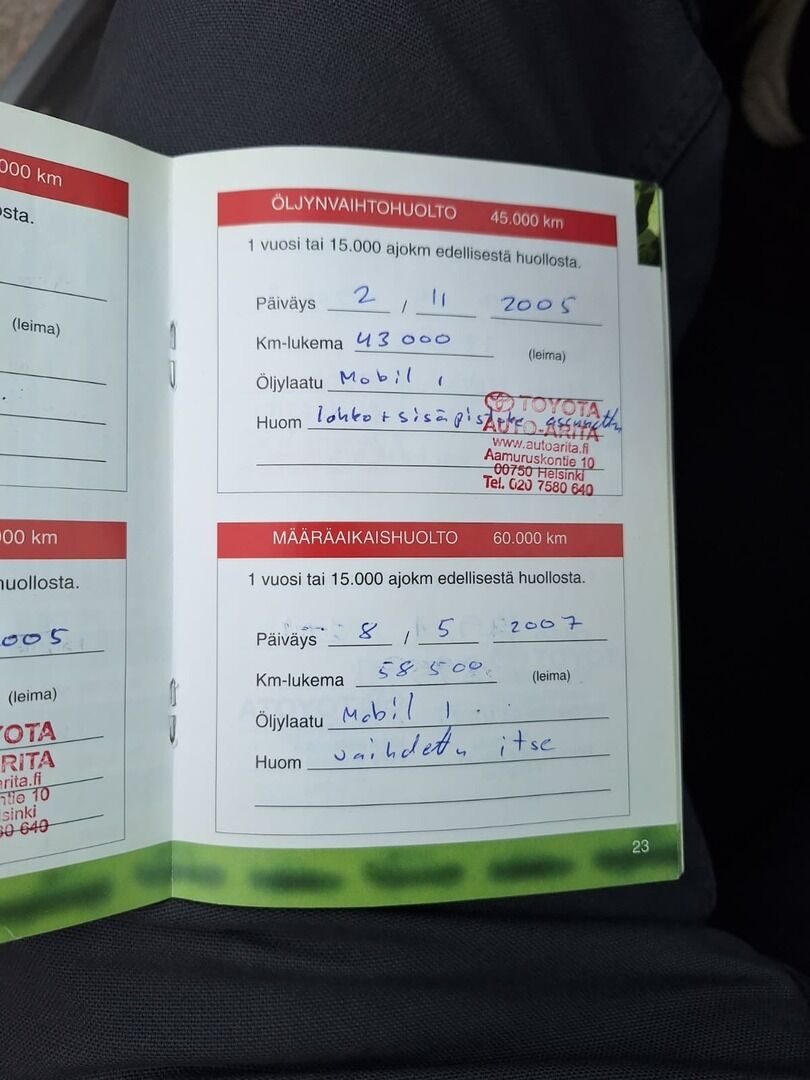 000 km
sta.
(leima)
00 km
huollosta.
005
(leima)
YOTA
RITA
rita.fi
ntie 10
sinki
80 640
ÖLJYNVAIHTOHUOLTO 45.000 km
1 vuosi tai 15.000 ajokm edellisestä huollosta.
Päiväys 2 / 11 2005
Km-lukema 43 000 (leima)
Öljylaatu Mobil 1
Huom lohko + sisäpistoke asennettu
TOYOTA
AUTO-ARITA
www.autoarita.fi
Aamuruskontie 10
00750 Helsinki
Tel. 020 7580 640
MÄÄRÄAIKAISHUOLTO 60.000 km
1 vuosi tai 15.000 ajokm edellisestä huollosta.
Päiväys 8 / 5 2007
Km-lukema 58 500 (leima)
Öljylaatu Mobil 1
Huom vaihdettu itse
23